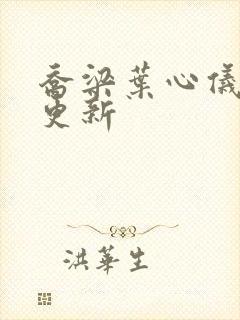 乔梁葉心儀
更新
洪華生